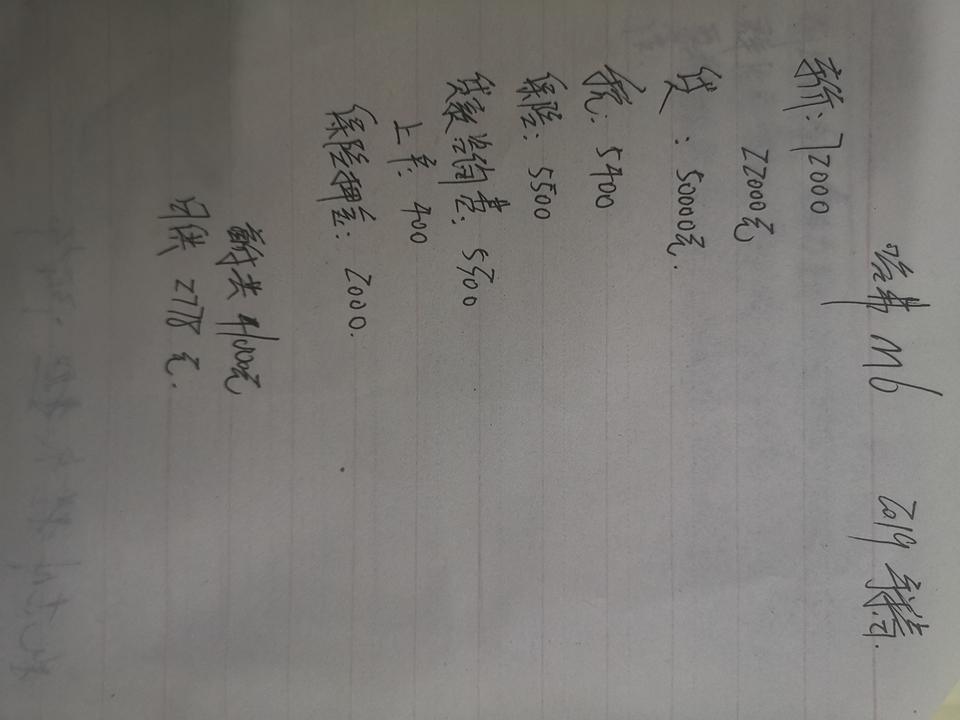 哈弗 M6 2019 年精英
车价：72000
22000元
贷：50000元．
税：5400
保险：5500
贷款治询费：5500
上户：400
保险押金：2000．
首付共 41000元
月供 2778 元．